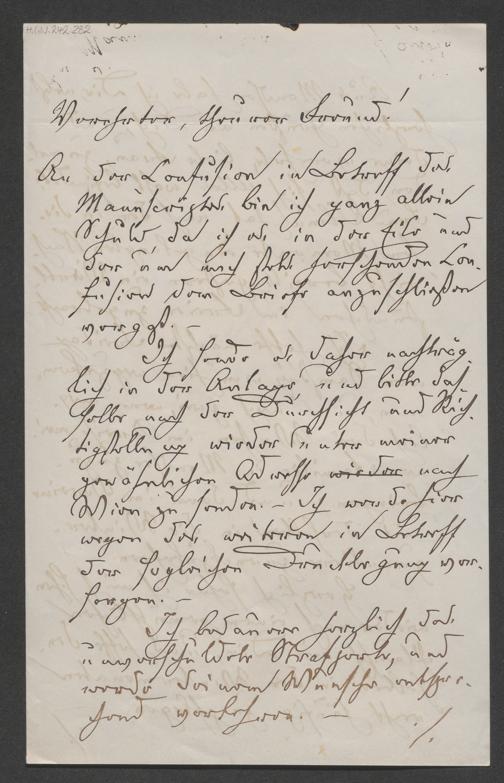 H.I.N. 242.282
Verehrter, theurer Freund!
An der Confusion in Betreff des
Manuscriptes bin ich ganz allein
Schuld, da ich es in der Eile und
der um mich stets herrschenden Con-
fusion dem Briefe anzuschließen
vergaß. –
Ich sende es daher nachträg-
lich in der Anlage und bitte das-
selbe nach der Durchsicht und Rich-
tigstellung wieder unter meiner
gewöhnlichen Adresse wieder nach
Wien zu senden. – Ich werde hier
wegen des weiteren in Betreff
der sogleichen Drucklegung vor-
sorgen. –
Ich bedaure herzlich das
unverschuldete Strafporto, und
werde deinem Wunsche entspre-
chend vorkehren. –
./.